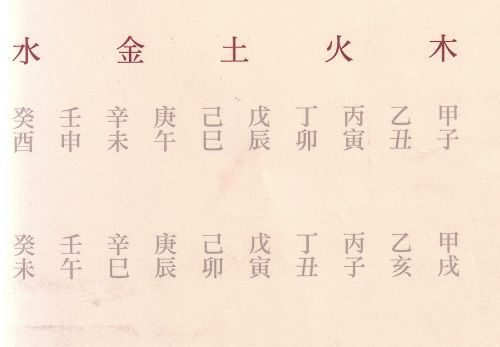 木 火 土 金 水
甲子 乙丑 丙寅 丁卯 戊辰 己巳 庚午 辛未 壬申 癸酉
甲戌 乙亥 丙子 丁丑 戊寅 己卯 庚辰 辛巳 壬午 癸未